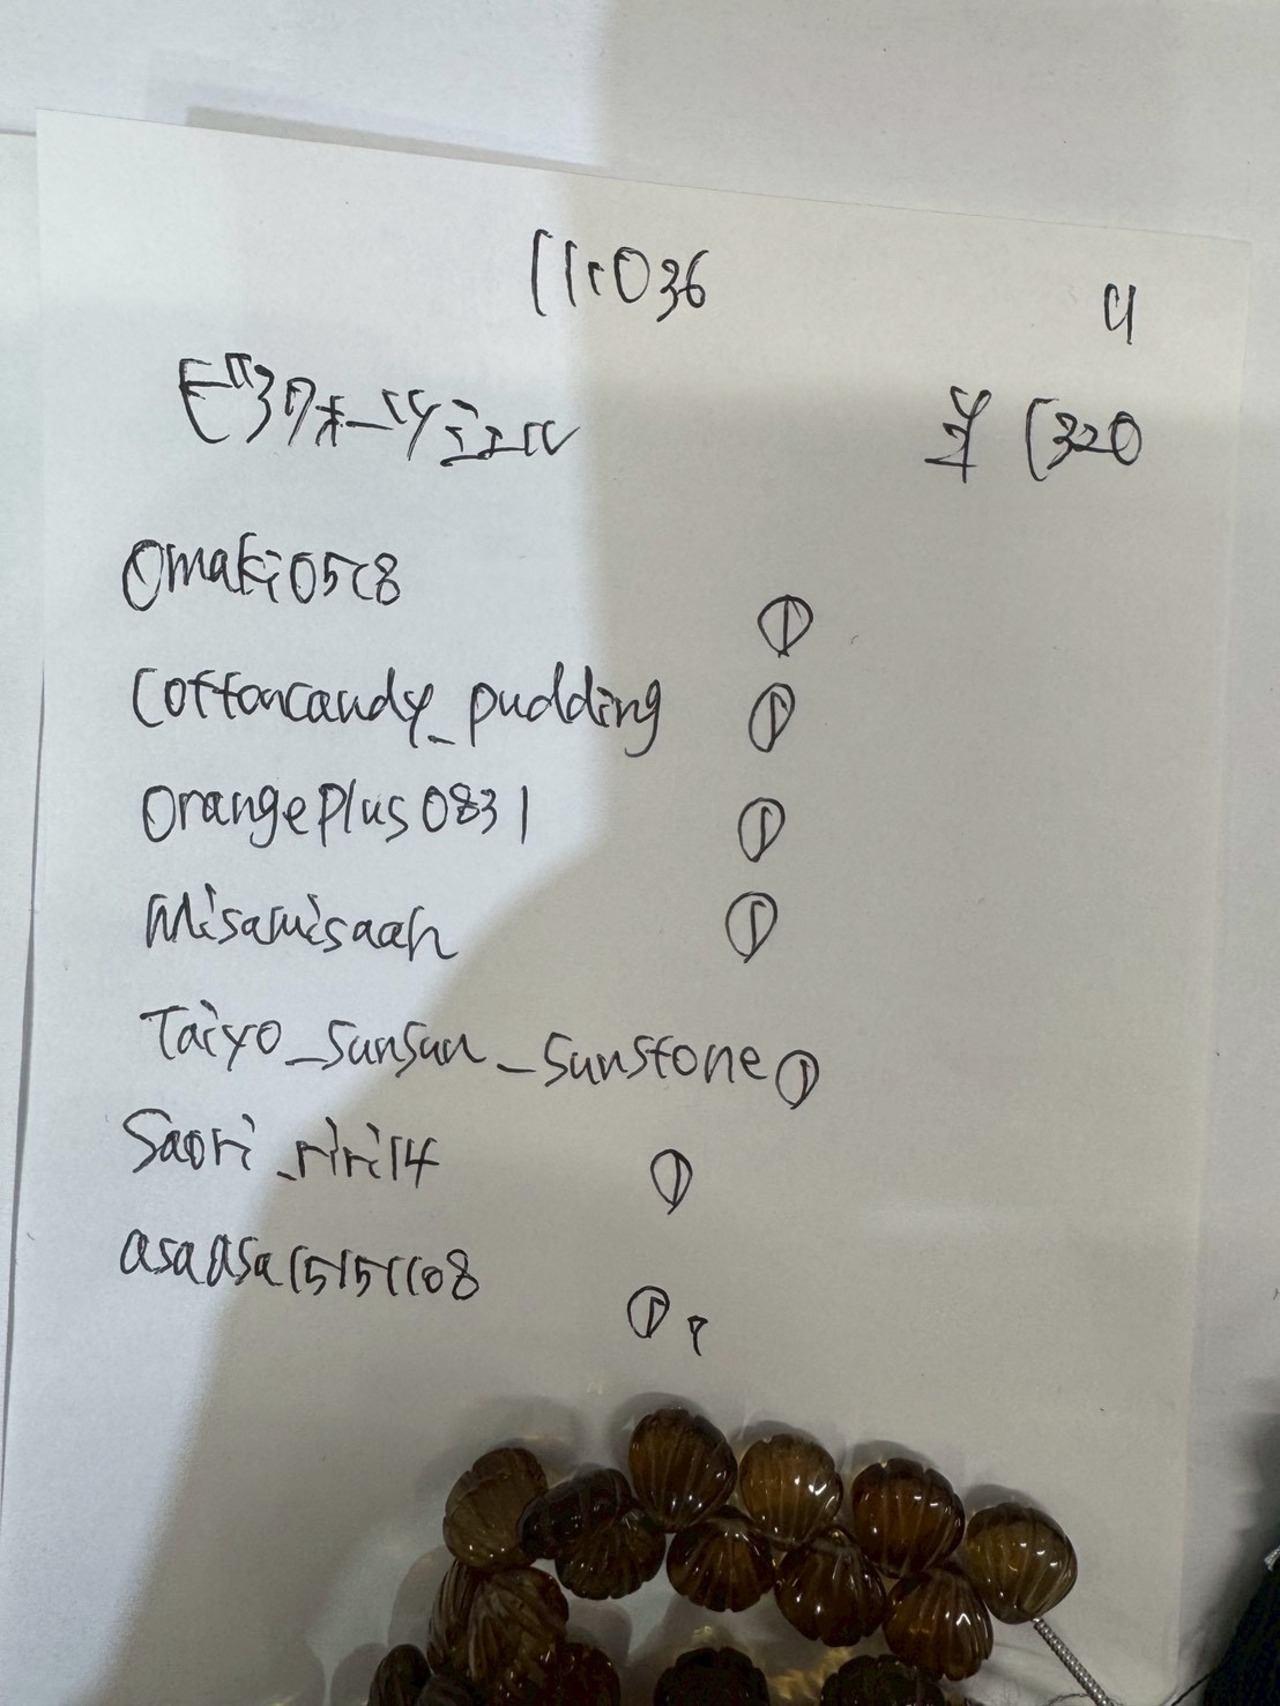 111036
4
ビラクォーツシェル
半 1320
Omaki0518
①
Cottoncandy_pudding ①
OrangePlus0831 ①
Misamisaah ①
Taiyo_sunsun_sunstone ①
Saori_riri14 ①
asaasa15151108
①